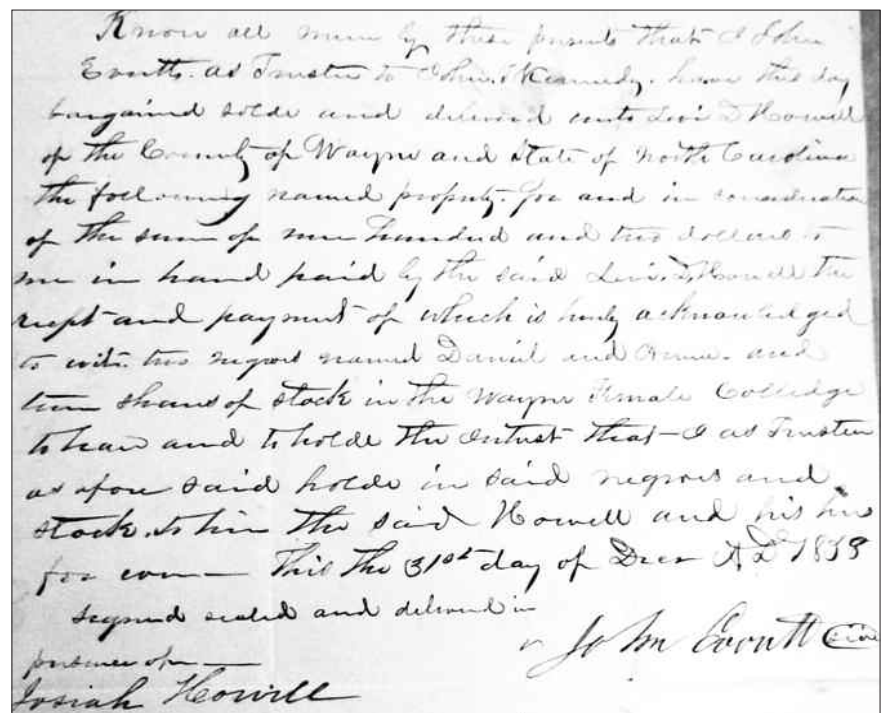 Know all men by these presents that I John
Evoutt. as Trustee to John. Kennedy. have this day
bargained solde and delivered unto Levi D Howell
of the County of Wayne and State of North Carolina
the following named property. for and in consideration
of the sum of nine hundred and two dollars to
me in hand paid by the said Levi. D. Howell the
recept and payment of which is herby acknowledged
to wit. two negroes named Daniel and and
shares of stock in the Wayne Female Colledge
to have and to holde the intrest that I as Trustee
as afore said holde in said negroes and
stock. to him the said Howell and his heirs
for ever This the 31st day of Decr AD
Segned sealed and delivered in
presence of
John Evoutt
Josiah Howell